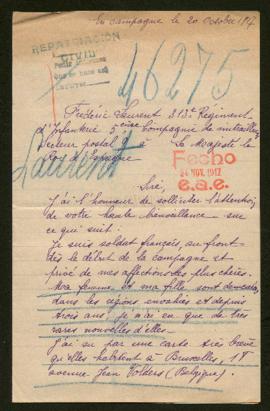 En campagne le 20 Octobre 1917
REPATRIACION
CIVIL
46275
Laurent
Frédéric Laurent 313e Régiment
d'Infanterie 3ème Compagnie de mitrailleuses
Secteur postal à Sa Majesté le
Roi d'Espagne
Fecho
24 NOV. 1917
e.a.e.
Sire,
J'ai l'honneur de solliciter l'attention
de votre haute bienveillance sur
ce qui suit:
Je suis soldat français, au front
dès le début de la campagne et
privé de mes affections les plus chères.
Ma femme et ma fille sont demeurées
dans les régions envahies et depuis
trois ans je n'ai eu que de très
rares nouvelles d'elles.
J'ai su par une carte très brève
qu'elles habitent à Bruxelles, 18
avenue Jean Volders (Belgique).